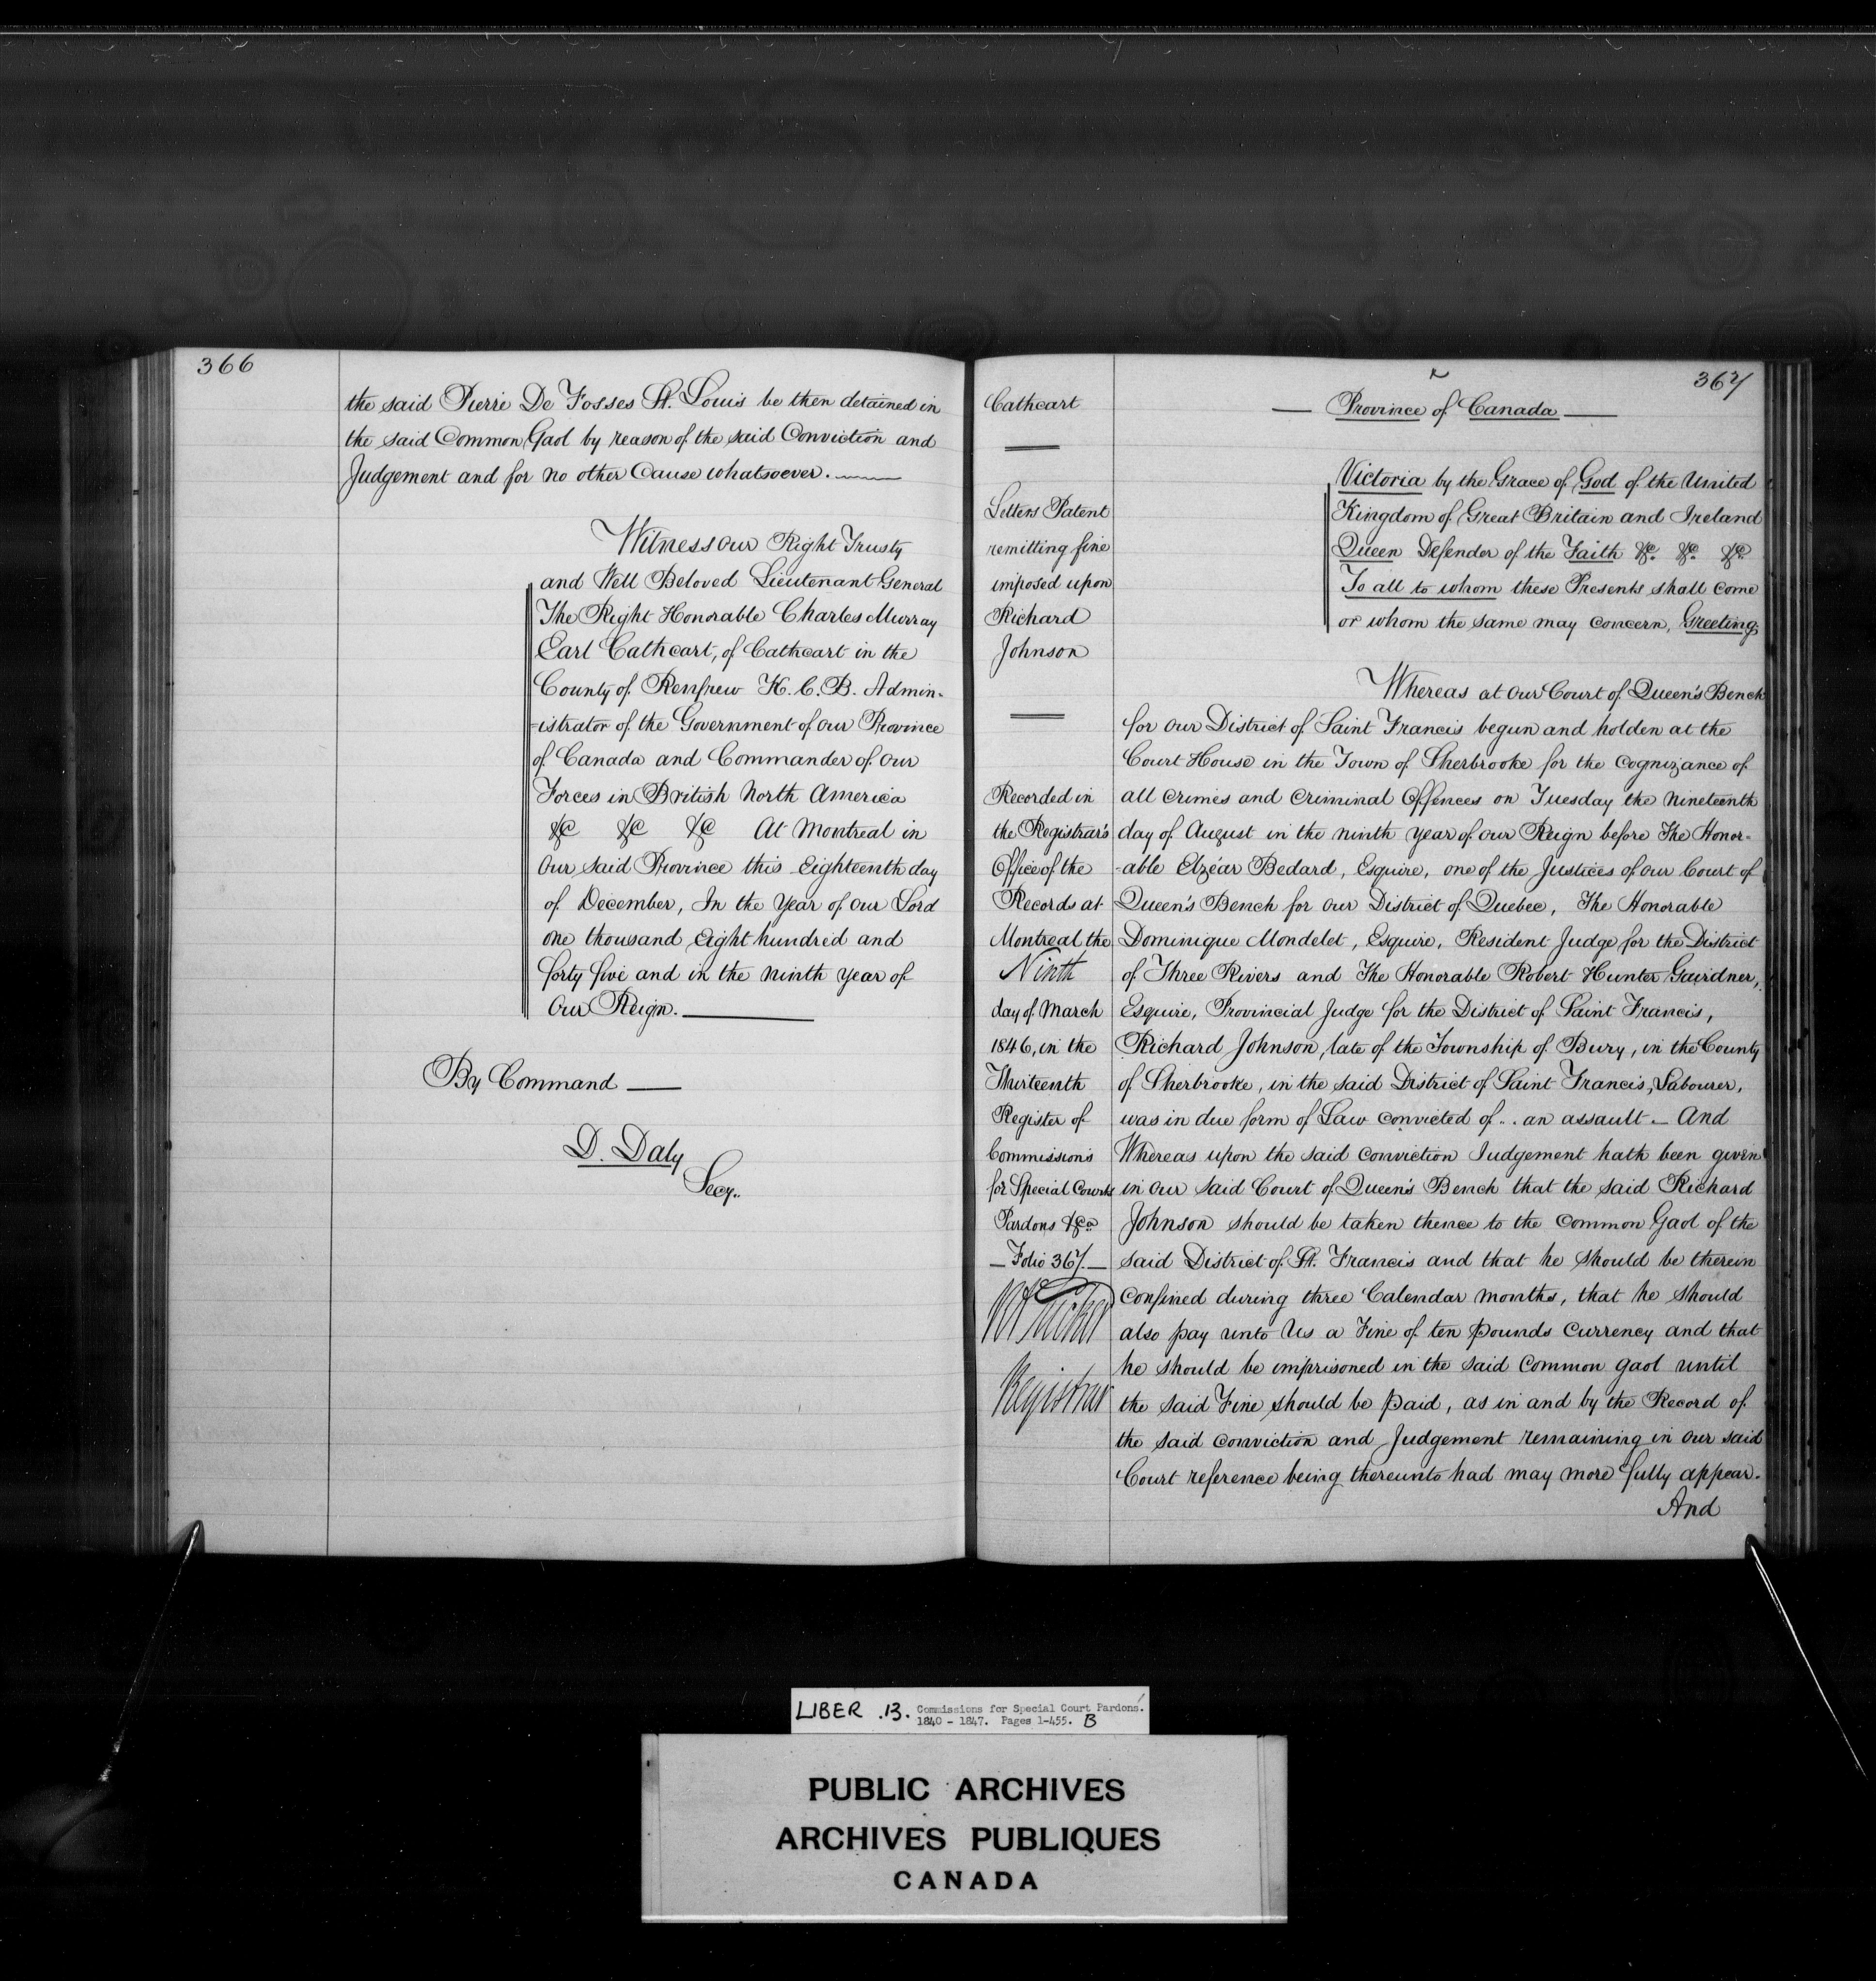 366
the said Pierre De Fosses St. Louis be then detained in
the said Common Gaol by reason of the said Conviction and
Judgement and for no other Cause whatsoever.
Witness our Right Trusty
and Well Beloved Lieutenant General
The Right Honorable Charles Murray
Earl Cathcart, of Cathcart in the
County of Renfrew K.C.B. Admin-
-istrator of the Government of our Province
of Canada and Commander of our
Forces in British North America
&c &c &c At Montreal in
our said Province this Eighteenth day
of December, In the Year of our Lord
one thousand Eight hundred and
forty five and in the ninth year of
Our Reign.
By Command
D. Daly
Secy.
367
Cathcart
Letters Patent
remitting fine
imposed upon
Richard
Johnson
Recorded in
the Registrar's
Office of the
Records at
Montreal the
Ninth
day of March
1846, in the
Thirteenth
Register of
Commissions
for Special Courts
Pardons &ca
Folio 367.
Registrar
Province of Canada
Victoria by the Grace of God of the United
Kingdom of Great Britain and Ireland
Queen Defender of the Faith &c. &c. &c.
To all to whom these Presents shall come
or whom the same may concern, Greeting
Whereas at our Court of Queen's Bench
for our District of Saint Francis begun and holden at the
Court House in the Town of Sherbrooke for the cognizance of
all crimes and Criminal Offences on Tuesday the nineteenth
day of August in the ninth year of our Reign before The Honor-
-able Elzéar Bedard, Esquire, one of the Justices of our Court of
Queen's Bench for our District of Quebec, The Honorable
Dominique Mondelet, Esquire, Resident Judge for the District
of Three Rivers and The Honorable Robert Hunter Gairdner,
Esquire, Provincial Judge for the District of Saint Francis,
Richard Johnson, late of the Township of Bury, in the County
of Sherbrooke, in the said District of Saint Francis, Labourer,
was in due form of Law convicted of .. an assault. And
Whereas upon the said conviction Judgement hath been given
in our said Court of Queen's Bench that the said Richard
Johnson should be taken thence to the Common Gaol of the
said District of St. Francis and that he should be therein
confined during three Calendar months, that he should
also pay unto Us a Fine of ten pounds currency and that
he should be imprisoned in the said common gaol until
the said Fine should be paid, as in and by the Record of
the said conviction and Judgement remaining in our said
Court reference being thereunto had may more fully appear.
And
LIBER .13. Commissions for Special Court Pardons.
1840 - 1847. Pages 1-455. B
PUBLIC ARCHIVES
ARCHIVES PUBLIQUES
CANADA